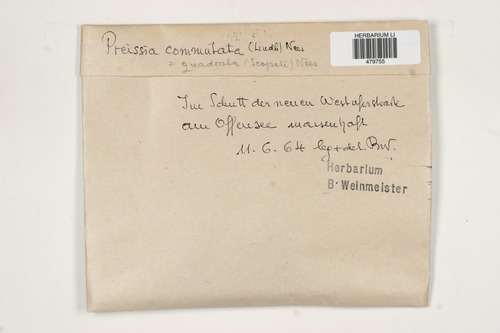 Preissia commutata (Lindb) Nees
= quadrata (Scopoli) Nees
HERBARIUM LI
479755
Im Schutt der neuen Westuferstraße
am Offensee massenhaft
11. 6. 64 leg + det. BW.
Herbarium
B. Weinmeister